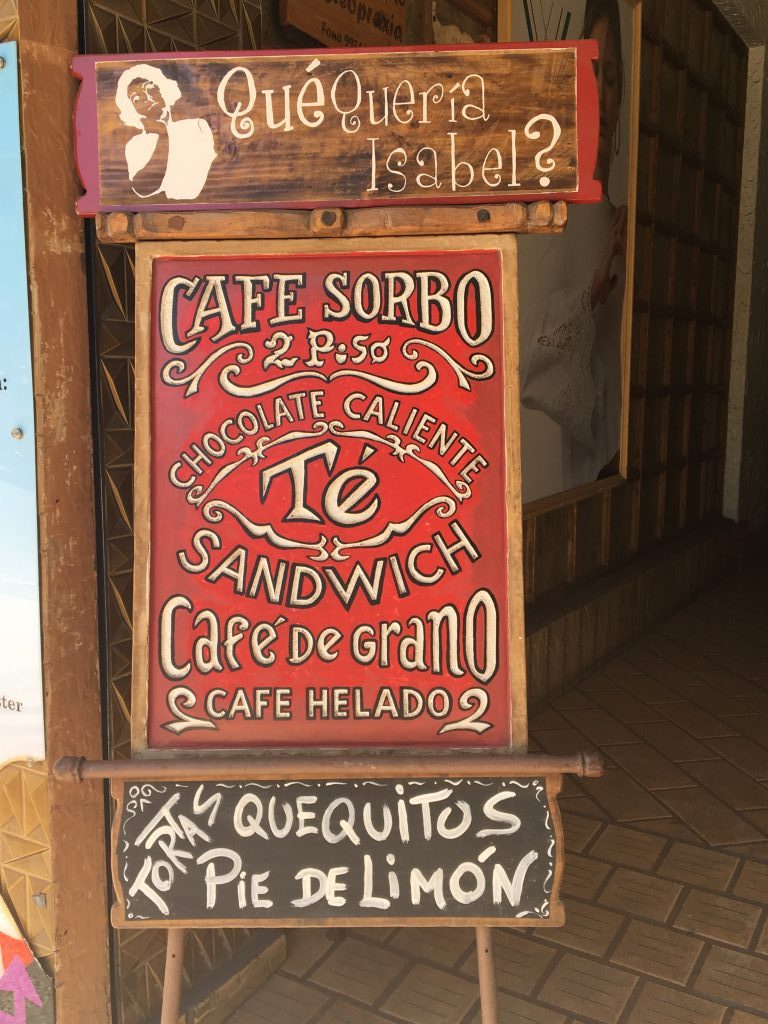 Quiropraxia
Fono 997
Qué Quería
Isabel?
CAFE SORBO
2 P:50
CHOCOLATE CALIENTE
Té
SANDWICH
Café de Grano
CAFE HELADO
TORTAS
QUEQUITOS
PIE DE LIMÓN
ster